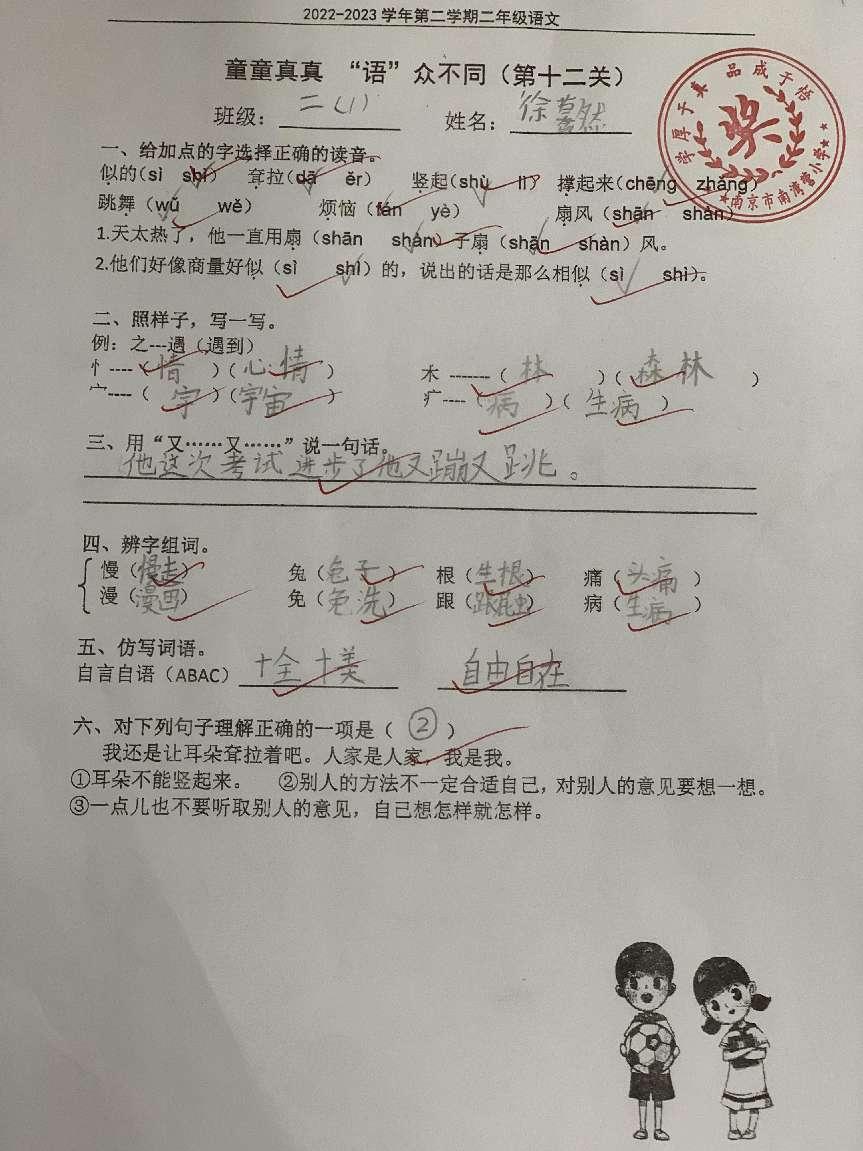 2022-2023 学年第二学期二年级语文
童童真真 “语”众不同（第十二关）
班级：二(1) 姓名：徐慕然
学厚于真 品成于悟
奖
南京市南湾营小学
一、给加点的字选择正确的读音。
似的（sì shì） 耷拉（dā ěr） 竖起（shù lì） 撑起来（chēng zhǎng）
跳舞（wǔ wě） 烦恼（fán yè） 扇风（shān shàn）
1.天太热了，他一直用扇（shān shàn）子扇（shān shàn）风。
2.他们好像商量好似（sì shì）的，说出的话是那么相似（sì shì）。
二、照样子，写一写。
例：之---遇（遇到）
忄----（情）（心情） 木 -------（林）（森林）
宀----（宇）（宇宙） 疒----（病）（生病）
三、用“又……又……”说一句话。
他这次考试进步了他又蹦又跳。
四、辨字组词。
慢（慢走） 兔（兔子） 根（生根） 痛（头痛）
漫（漫画） 免（免洗） 跟（） 病（生病）
五、仿写词语。
自言自语（ABAC） 十全十美 自由自在
六、对下列句子理解正确的一项是（②）
我还是让耳朵耷拉着吧。人家是人家，我是我。
①耳朵不能竖起来。 ②别人的方法不一定合适自己，对别人的意见要想一想。
③一点儿也不要听取别人的意见，自己想怎样就怎样。